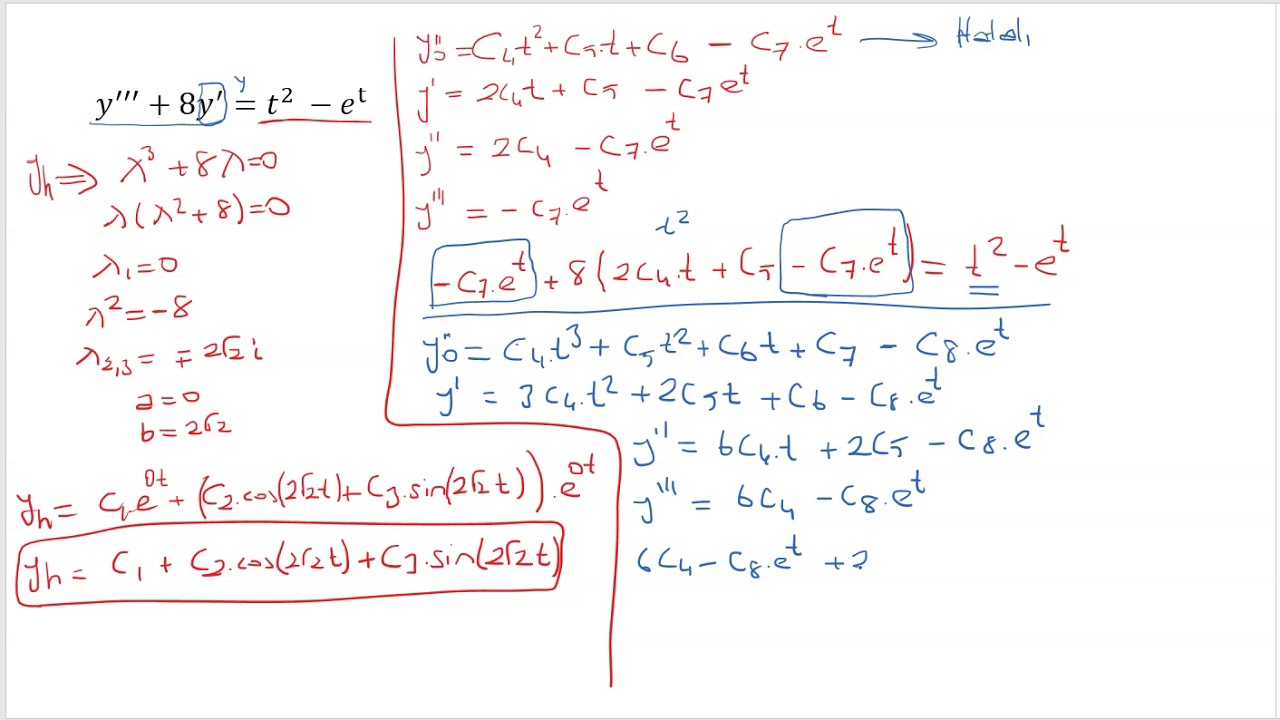 y''' + 8y' = t² − eᵗ
y
yₕ ⇒ λ³ + 8λ = 0
λ(λ² + 8) = 0
λ₁ = 0
λ² = −8
λ₂,₃ = ∓ 2√2 i
a = 0
b = 2√2
yₕ = C₁e^(0t) + (C₂.cos(2√2t) + C₃.sin(2√2t)).e^(0t)
yₕ = C₁ + C₂.cos(2√2t) + C₃.sin(2√2t)
yö = C₄t² + C₅.t + C₆ − C₇.eᵗ → Hatalı
y' = 2C₄t + C₅ − C₇eᵗ
y'' = 2C₄ − C₇.eᵗ
y''' = −C₇.eᵗ
t²
−C₇.eᵗ + 8(2C₄.t + C₅ − C₇.eᵗ) = t² − eᵗ
yö = C₄.t³ + C₅t² + C₆t + C₇ − C₈.eᵗ
y' = 3C₄.t² + 2C₅t + C₆ − C₈.eᵗ
y'' = 6C₄.t + 2C₅ − C₈.eᵗ
y''' = 6C₄ − C₈.eᵗ
6C₄ − C₈.eᵗ +